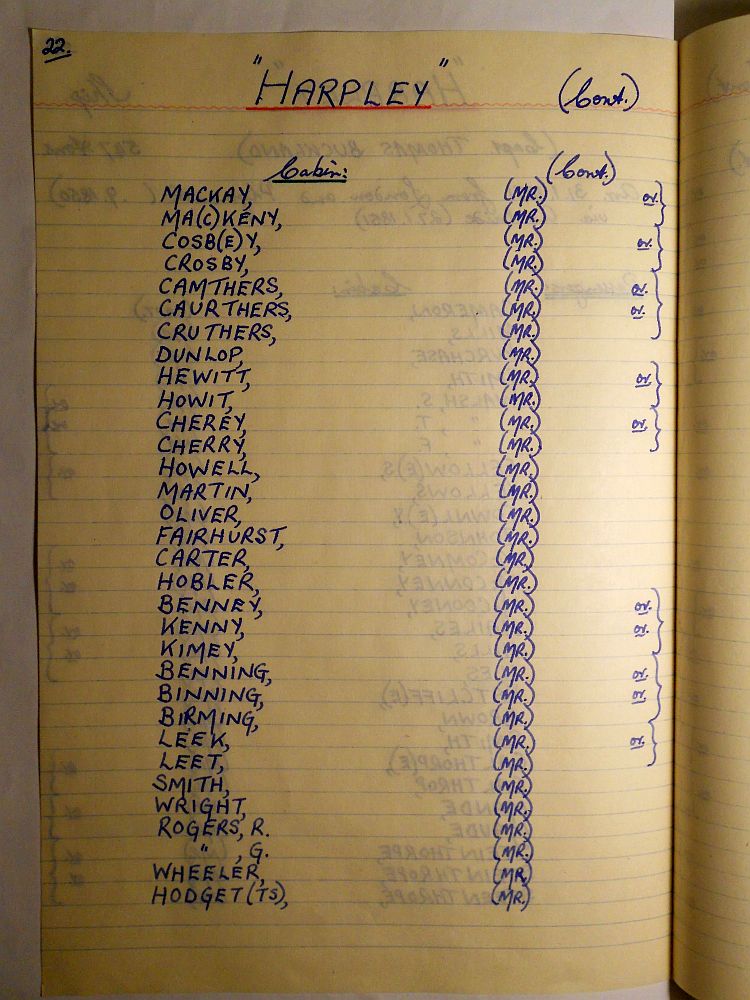 22.
"HARPLEY" (Cont.)
Cabin: (Cont.)
MACKAY, (MR.) or.
MA(C)KENY, (MR.)
COSB(E)Y, (MR.) or.
CROSBY, (MR.)
CAMTHERS, (MR.) or.
CAURTHERS, (MR.) or.
CRUTHERS, (MR.)
DUNLOP, (MR.)
HEWITT, (MR.) or.
HOWIT, (MR.)
CHEREY, (MR.) or.
CHERRY, (MR.)
HOWELL, (MR.)
MARTIN, (MR.)
OLIVER, (MR.)
FAIRHURST, (MR.)
CARTER, (MR.)
HOBLER, (MR.)
BENNEY, (MR.) or.
KENNY, (MR.) or.
KIMEY, (MR.)
BENNING, (MR.) or.
BINNING, (MR.) or.
BIRMING, (MR.)
LEEK, (MR.) or.
LEET, (MR.)
SMITH, (MR.)
WRIGHT, (MR.)
ROGERS, R. (MR.)
" , G. (MR.)
WHEELER, (MR.)
HODGET(TS), (MR.)